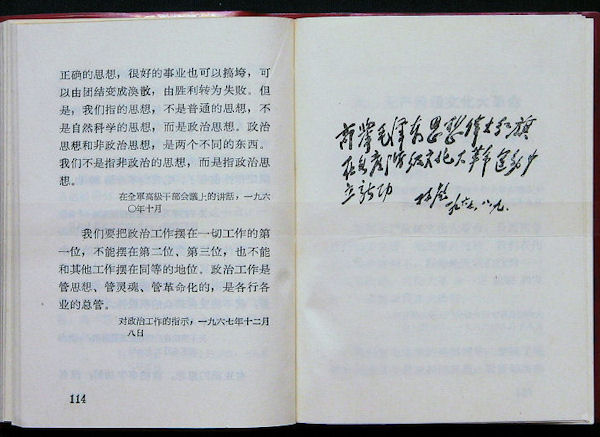 正确的思想，很好的事业也可以搞垮，可
以由团结变成涣散，由胜利转为失败。但
是，我们指的思想，不是普通的思想，不
是自然科学的思想，而是政治思想。政治
思想和非政治思想，是两个不同的东西。
我们不是指非政治的思想，而是指政治思
想。
在全軍高級干部会議上的讲話，一九六
〇年十月
我们要把政治工作摆在一切工作的第
一位，不能摆在第二位、第三位，也不能
和其他工作摆在同等的地位。政治工作是
管思想、管灵魂、管革命化的，是各行各
业的总管。
对政治工作的指示，一九六七年十二月
八日
114
高举毛泽东思想伟大红旗
在无产阶级文化大革命运动中
立新功
林彪